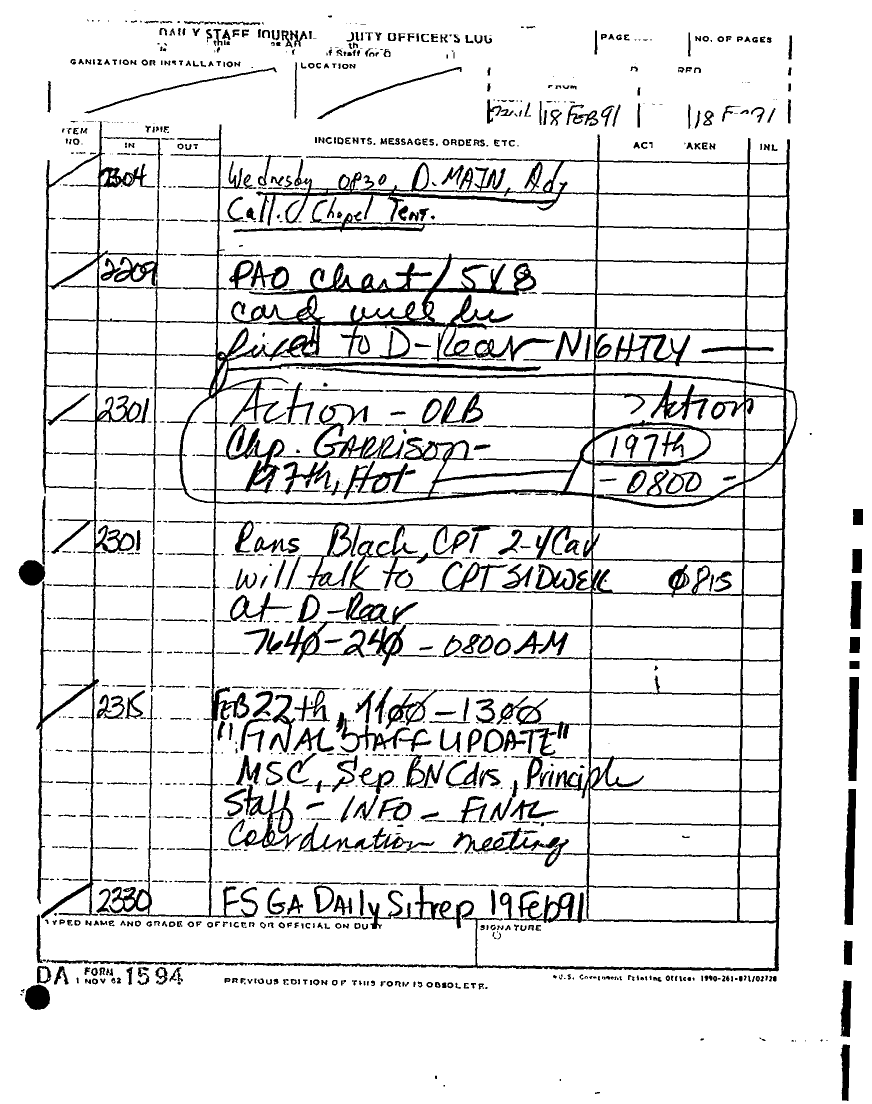 DAILY STAFF JOURNAL DUTY OFFICER'S LOG
PAGE NO. OF PAGES
GANIZATION OR INSTALLATION LOCATION
FROM
18 FEB 91 18 FEB 91
ITEM NO. TIME INCIDENTS, MESSAGES, ORDERS, ETC. ACT AKEN INL
IN OUT
2304 Wednesday, 0830, D. MAIN,
Call. Chapel Tent.
2209 PAO chart / 5X8
card will be
faxed to D-Rear NIGHTLY —
2301 Action - ORB > Action
Chp. GARRISON- 197th
197th, Hot - 0800 -
2301 Rans Black, CPT 2-4 Cav
will talk to CPT SIDWELL 0815
at D-Rear
7640-240 - 0800 AM
2315 FEB 22th, 1100-1300
"FINAL STAFF UPDATE"
MSC, Sep BN Cdrs, Principle
Staff - INFO - FINAL
Coordination meeting
2330 FSGA Daily Sitrep 19 Feb 91
TYPED NAME AND GRADE OF OFFICER OR OFFICIAL ON DUTY SIGNATURE
DA FORM 1 NOV 62 1594 PREVIOUS EDITION OF THIS FORM IS OBSOLETE. U.S. Government Printing Office: 1990-261-871/02728